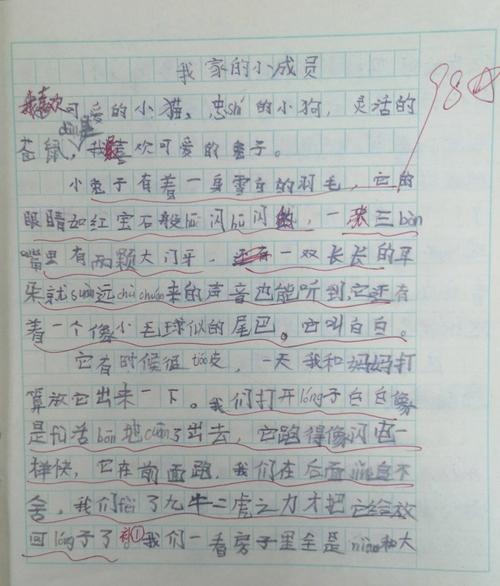 我家的小成员
我喜欢可爱的小猫、忠shí的小狗,灵活的
仓鼠,我喜欢可爱的兔子。
98
小兔子有着一身雪白的羽毛,它的
眼睛如红宝石般闪闪,一张三bàn
嘴里有两颗大门牙,还有一双长长的耳
朵就suàn远chù chuán来的声音也能听到,它还有
着一个像小毛球似的尾巴。它叫白白。
它有时候很táo皮,一天我和妈妈打
算放它出来一下。我们打开lóng子白白像
是地cuān了出去,它跑得像闪电一
样快,它在前面跑,我们在后面不
舍,我们俩了九牛二虎之力才把它给放
回lóng子了①我们一看房子里全是niào和大